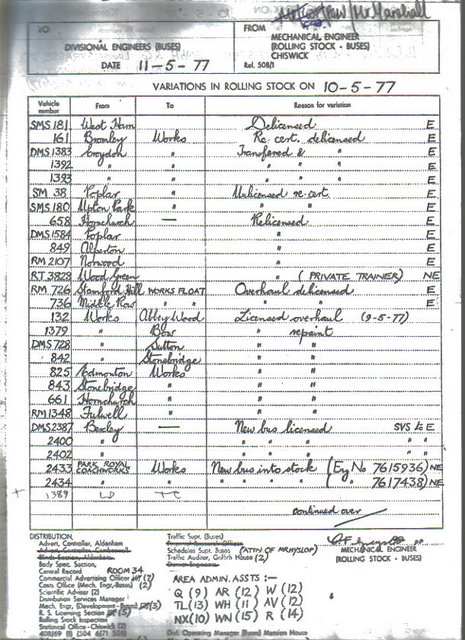 Mr Marshall
TO
FROM
DIVISIONAL ENGINEERS (BUSES)
MECHANICAL ENGINEER
(ROLLING STOCK - BUSES)
CHISWICK
DATE 11-5-77
Ref. 508/1
VARIATIONS IN ROLLING STOCK ON 10-5-77
Vehicle number From To Reason for variation
SMS 181 West Ham Delicensed E
161 Bromley Works Re. cert. delicensed E
DMS 1383 Croydon " Transfered & " " E
1392 " " " " " E
1393 " " " " " E
SM 38 Poplar " Unlicensed re. cert. E
SMS 180 Upton Park " " " E
658 Hornchurch — Relicensed E
DMS 1584 Poplar " E
849 Alperton " E
RM 2107 Norwood " E
RT 3828 Wood Green " (PRIVATE TRAINER) NE
RM 726 Stamford Hill WORKS FLOAT Overhaul delicensed E
736 Middle Row " " " " E
132 Works Abbey Wood Licensed overhaul (9-5-77)
1379 " Bow " repaint
DMS 728 " Sutton " "
842 " Stonebridge " "
825 Edmonton Works " "
843 Stonebridge " " "
661 Hornchurch " " "
RM 1348 Fulwell " " "
DMS 2387 Bexley — New bus licensed SVS to E
2400 " " " "
2402 " " " "
2433 PARK ROYAL COACHWORKS Works New bus into stock (Eng No 7615936) NE
2434 " " " " " " ( " " 7617438) NE
+ 1389
continued over
DISTRIBUTION
Advert. Controller, Aldenham
Body Spec. Section,
Central Record ROOM 34
Commercial Advertising Officer (2)
Costs Office (Mech. Engr.-Buses) (2)
Scientific Adviser (2)
Distribution Services Manager
Mech. Engr. (Development- (3)
R. S. Licensing Section (5)
Rolling Stock Inspection
Statistical Office - Chiswick (2)
Traffic Supt. (Buses)
Schedules Supt. (Buses) (ATTN OF MR HYSLOP)
Traffic Auditor, Griffith House (2)
AREA ADMIN. ASSTS :-
Q (9) AR (12) W (12)
TL (13) WH (11) AV (12)
NX (10) WN (15) R (14)
Dist. Operating Manager (Buses) Mansion House
MECHANICAL ENGINEER
(ROLLING STOCK - BUSES)